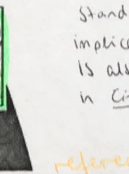 Stand
implic
Is als
in Ci
refere